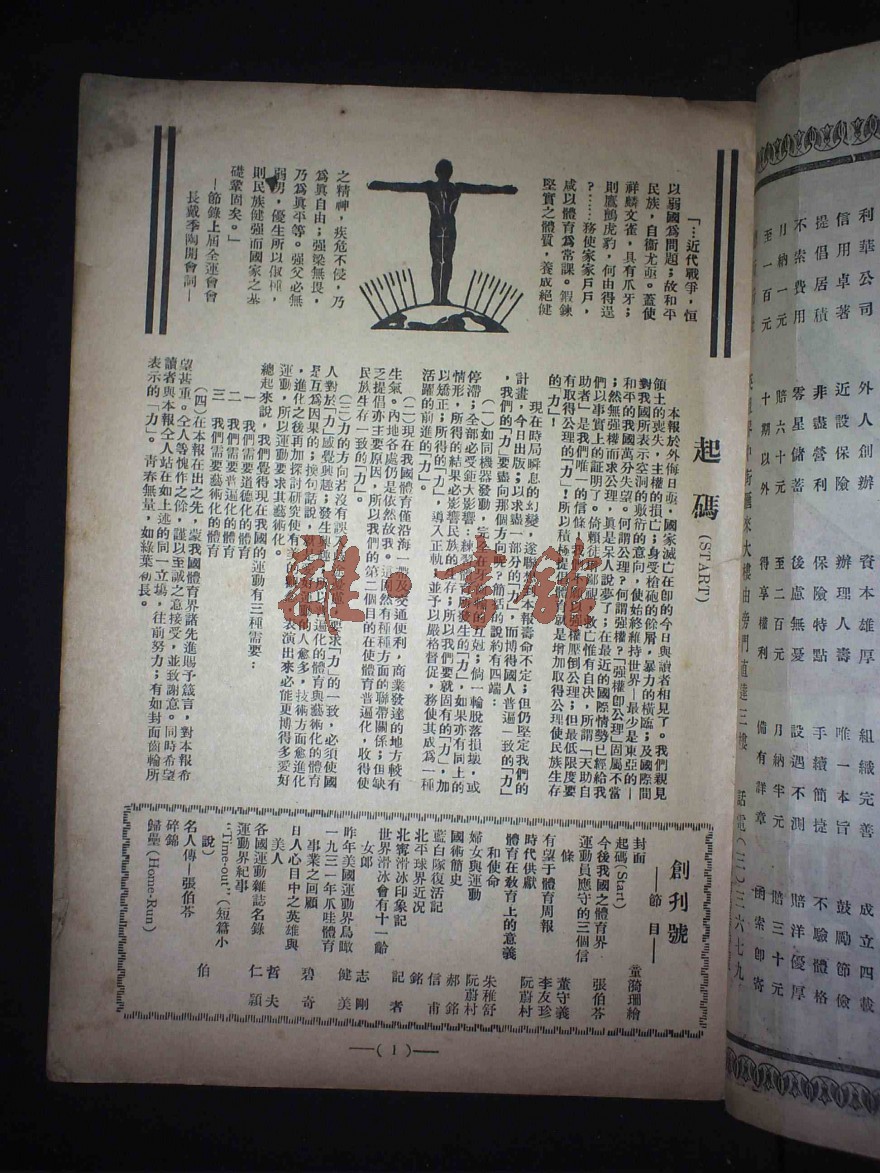 「…近代戰爭，恒
以弱國爲問題；故和平
民族，自衞尤亟。蓋使
祥麟文雀，具有爪牙；
則鷹鸇虎豹，何由得逞
？……務使家家戶戶，
咸以體育爲常課。鍜鍊
堅實之體質，養成絕健
之精神，疾危不侵，乃
爲眞自由；强梁無畏，
乃爲眞平等。强父必無
弱男，優生所以俶種，
則民族健强而國家之基
礎鞏固矣。」
—節錄上屆全運會會
長戴季陶開會詞—
起碼(START)
本報於外侮日亟，國家滅亡在卽的今日與讀者相見了。我們親見
領土的喪失，主權的損亡；身受槍砲的餘屑，暴力的橫臨；及國際間
對我國所表示空洞的敷衍的意向，使始終維持世界—最少是東亞的—
和平的我國萬分失望。何謂公理？何謂强權？「强權卽公理」固屬不當
；然無强權而求公理，眞是呆人說夢了；在最近的國際情勢已經給我
們以事實上的證明了。倚賴徒
救亡惟有自决，所謂「天助自
助者」是我們唯一的信條
以强權壓倒公理；但最低限度要
有取得公理的「力」！所以積極提倡體育就是增加取得公理使民族生存
的「力」！
現在時局瞬息的幻變，遂聯
本報壽命不定；但仍堅定我們的
計畫，今日出版；以求盡一部分的「力」，而博得國人普遍一致的「力」
，我們的「力」要盡向那個方向呢？簡括的說約有四端：
（一）如同機器發動，完全在
的互尅；倘一輪脫落損壞，或
停滯；全部必受鉅大影響：練
所發生的「力」，如果亦有同上的
情形，所得的結果必影響民族的生存；所以我們要就固有的「力」，加
以矯正；所得的「力」，導入正軌，並予以嚴格督促，務使其成爲一種
活躍的前進的「力」。
（二）現在我國體育僅沿海一帶及交通便利，商業發達的地方較有
生氣。內地各處仍是依然故我。這
然有種種方面的聯帶關係；但缺
乏提倡亦主要原因，所以我們的第二個目的在使體育普遍化，收得使
民族生存一致的「力」。
（三）力的方向若沒有誤入
要求「力」的一致，必須使國
人對於「力」感覺興趣；發生興趣
普遍化的體育與藝術化的體育
是互爲因果的；換句話說，
的人愈多，技術方面愈進化
，進化之後再加探討研究使有美的
表演出來必能更博得多愛好
運動，所以運動要求其藝術化。
總起來說，我們覺得現在我國的運動有三種需要：
一　我們需要道德化的體育
二　我們需要普遍化的體育
三　我們需要藝術化的體育
（四）在本報在出之先，蒙我國體育界諸先進賜予箴言，對本報希
望甚重。仝人等愧作之餘，謹以至誠之意接受，並致謝意。同時希望
讀者與本報仝人站在如上述的同一立塲，往前努力；有如封面齒輪所
表示的「力」。靑春無量，如綠葉初長。
創刊號
——節　目——
封面　童漪珊繪
起碼(Start)
今後我國之體育界　張伯苓
運動員應守的三個信
條　董守義
有望于體育周報　李友珍
時代供獻　阮蔚村
體育在敎育上的意義
和使命　朱稚舒
婦女與運動　阮蔚村
國術簡史　郝銘
藍白隊復活記　信甫
北平球界近况　銘
北寗滑冰印象記　記者
世界滑冰會有十一齡
女郎　志剛
昨年美國運動界鳥瞰　健美
一九三一年爪哇體育
事業之回顧　碧奇
日人心目中之英雄與
美人　哲夫
各國運動雜誌名錄　仁頴
運動界紀事
“Time-out”（短篇小
說）　伯
名人傳—張伯苓
碎錦
歸壘(Home-Run)
—( 1 )—
利華公司　外人創辦　資本雄厚　組織完善　成立四載
信用卓著　近設保險　辦理人壽　唯一本旨　鼓勵節儉
提倡居積　非盡營利　保險特點　手續簡捷　不驗體格
不索費用　零星儲蓄　後慮無憂　設遇不測　賠洋優厚
月納一元　賠六十元　至二百元　月納半元　賠三十元
至一百元　十期以外　得享權利　備有詳章　函索卽寄
大樓由旁門直達三樓　話電(三)三六七九
雜·書館